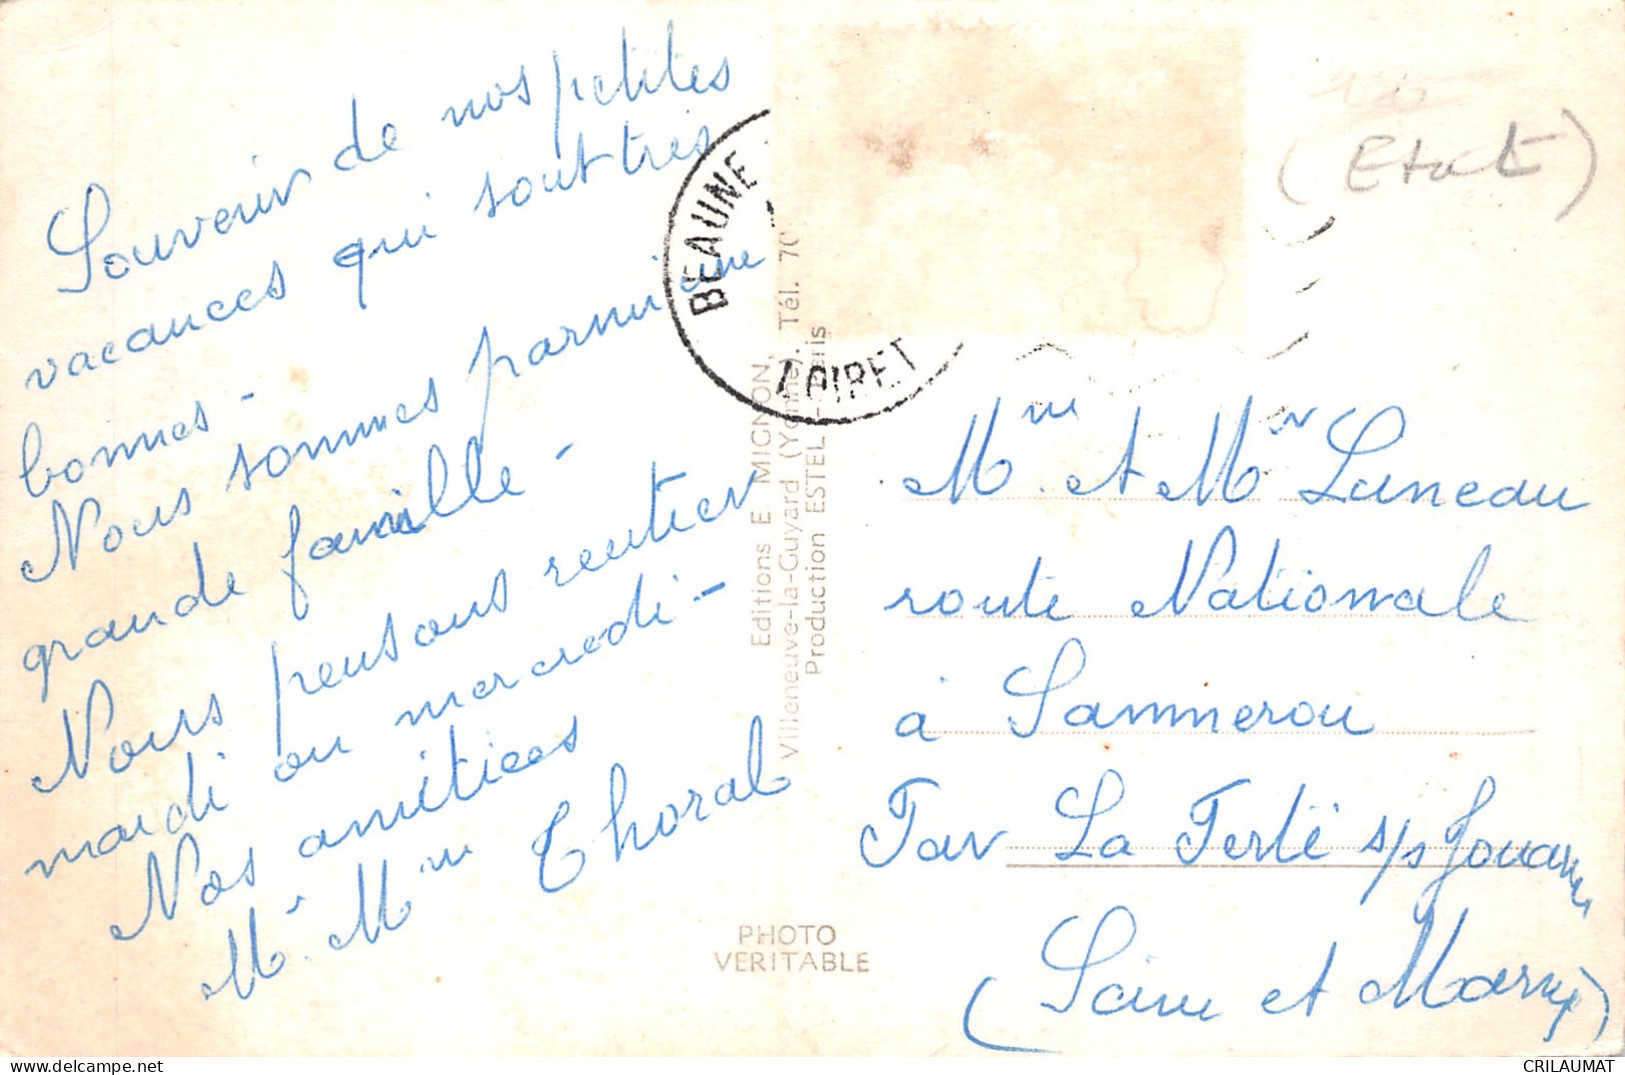 Souvenir de nos petites
vacances qui sont très
bonnes -
Nous sommes parmi une
grande famille -
Nous pensons rentrer
mardi ou mercredi -
Nos amitiés
Mr. Mme Thoral
BEAUNE
LOIRET
Editions E MIGNON,
Villeneuve-la-Guyard (Yonne). Tél. 70
Production ESTEL - Paris
PHOTO
VERITABLE
(Etat)
Mme et Mr Luneau
route Nationale
à Sammerou
Par La Ferté s/s Jouarre
(Seine et Marne)
CRILAUMAT